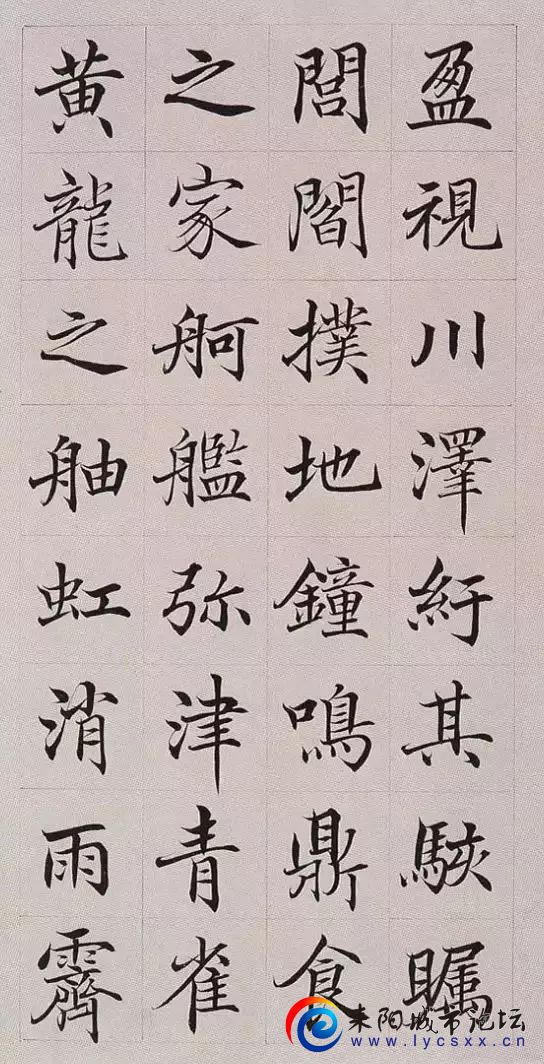 盈視川澤紆其駭矚
閭閻撲地鐘鳴鼎食
之家舸艦弥津青雀
黄龍之舳虹消雨霽
耒阳城市论坛
www.lycsxx.cn